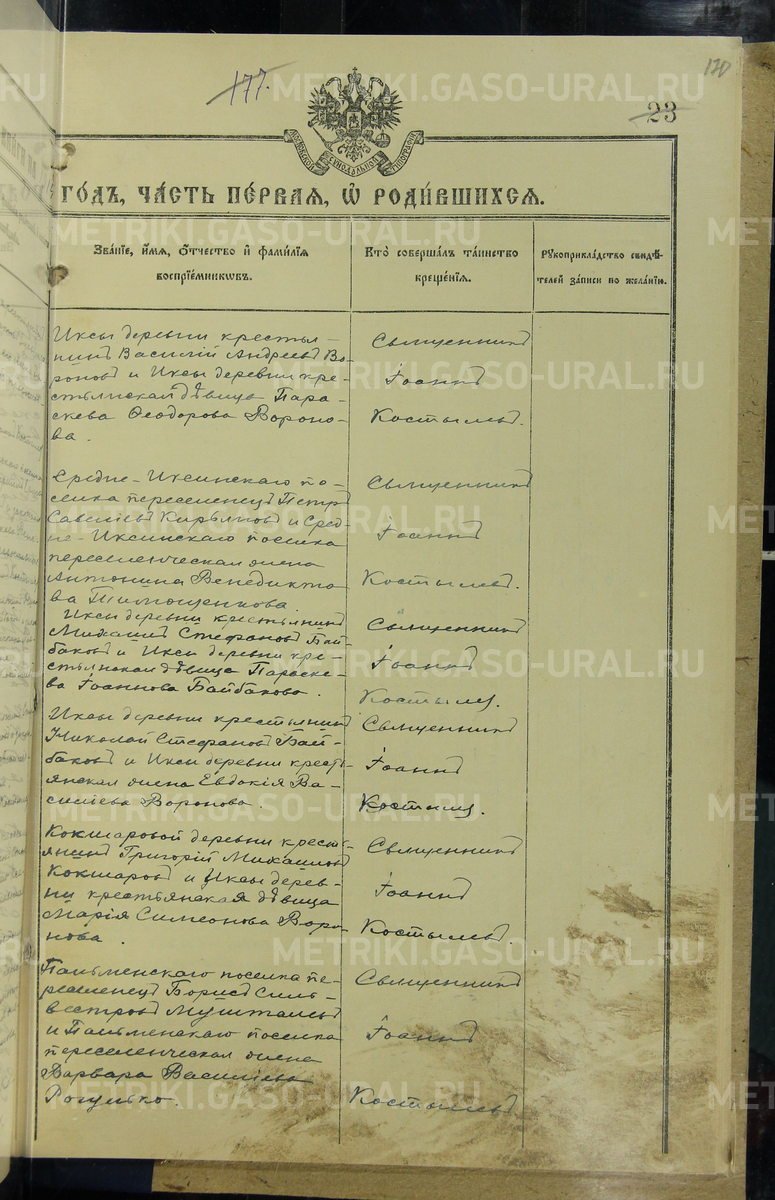 177.
170
23
МОСКОВСКОЙ СѴНОДАЛЬНОЙ ТИПОГРАФІИ
ГОДЪ, ЧАСТЬ ПЕРВАЯ, Ѽ РОДИВШИХСЯ.
Званіе, имя, отчество и фамилія
воспріемниковъ.
Кто совершалъ таинство
крещенія.
Рукоприкладство свидѣ-
телей записи по желанію.
Иксы деревни крестья-
нинъ Василій Андреевъ Во-
роновъ и Иксы деревни кре-
стьянская дѣвица Пара-
скева Ѳеодорова Вороно-
ва.
Священникъ
Іоаннъ
Костылевъ.
Средне-Иксинскаго по-
селка переселенецъ Петръ
Савеліевъ Кирьяновъ и Сред-
не-Иксинскаго поселка
переселенческая жена
Антонина Венедикто-
ва Тимощенкова.
Священникъ
Іоаннъ
Костылевъ.
Иксы деревни крестьянинъ
Михаилъ Стефановъ Бай-
баковъ и Иксы деревни кре-
стьянская дѣвица Параске-
ва Іоаннова Байбакова.
Священникъ
Іоаннъ
Костылевъ.
Иксы деревни крестьянинъ
Николай Стефановъ Бай-
баковъ и Иксы деревни кресть-
янская жена Евдокія Ва-
силіева Воронова.
Священникъ
Іоаннъ
Костылевъ.
Кокшаровой деревни кресть-
янинъ Григорій Михаиловъ
Кокшаровъ и Иксы дерев-
ни крестьянская дѣвица
Марія Симеонова Воро-
нова.
Священникъ
Іоаннъ
Костылевъ.
поселка пе-
реселенецъ Борисъ Силь-
вестровъ
и поселка
переселенческая жена
Варвара Василіева
Рогулько.
Священникъ
Іоаннъ
Костылевъ
METRIKI.GASO-URAL.RU